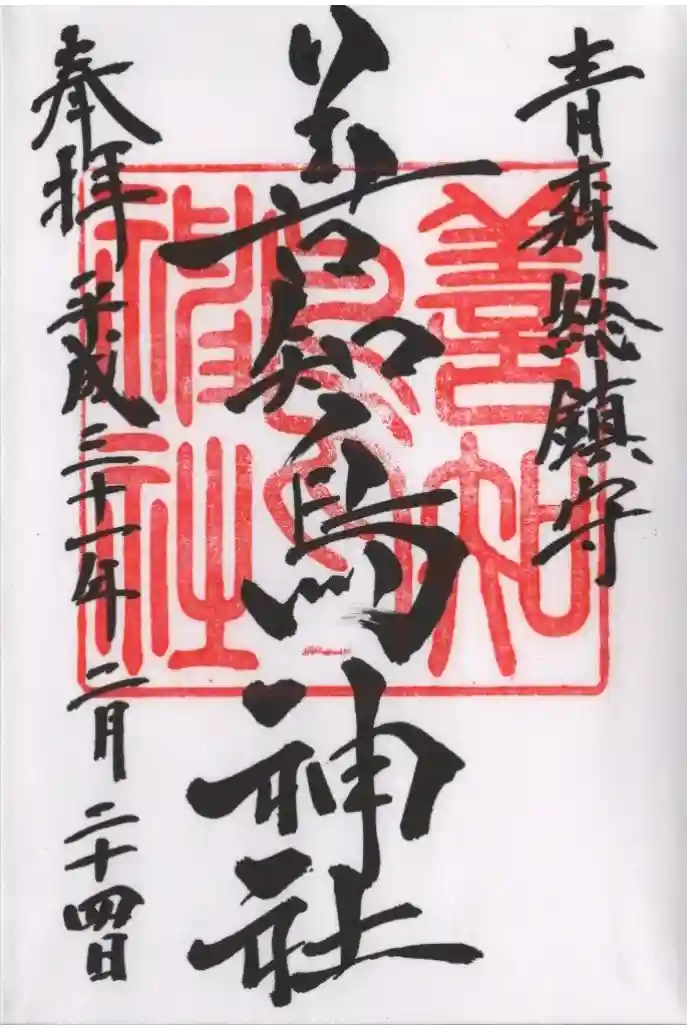 青森総鎮守
善知鳥神社
奉拝 平成三十一年二月二十四日
善知
鳥
神社